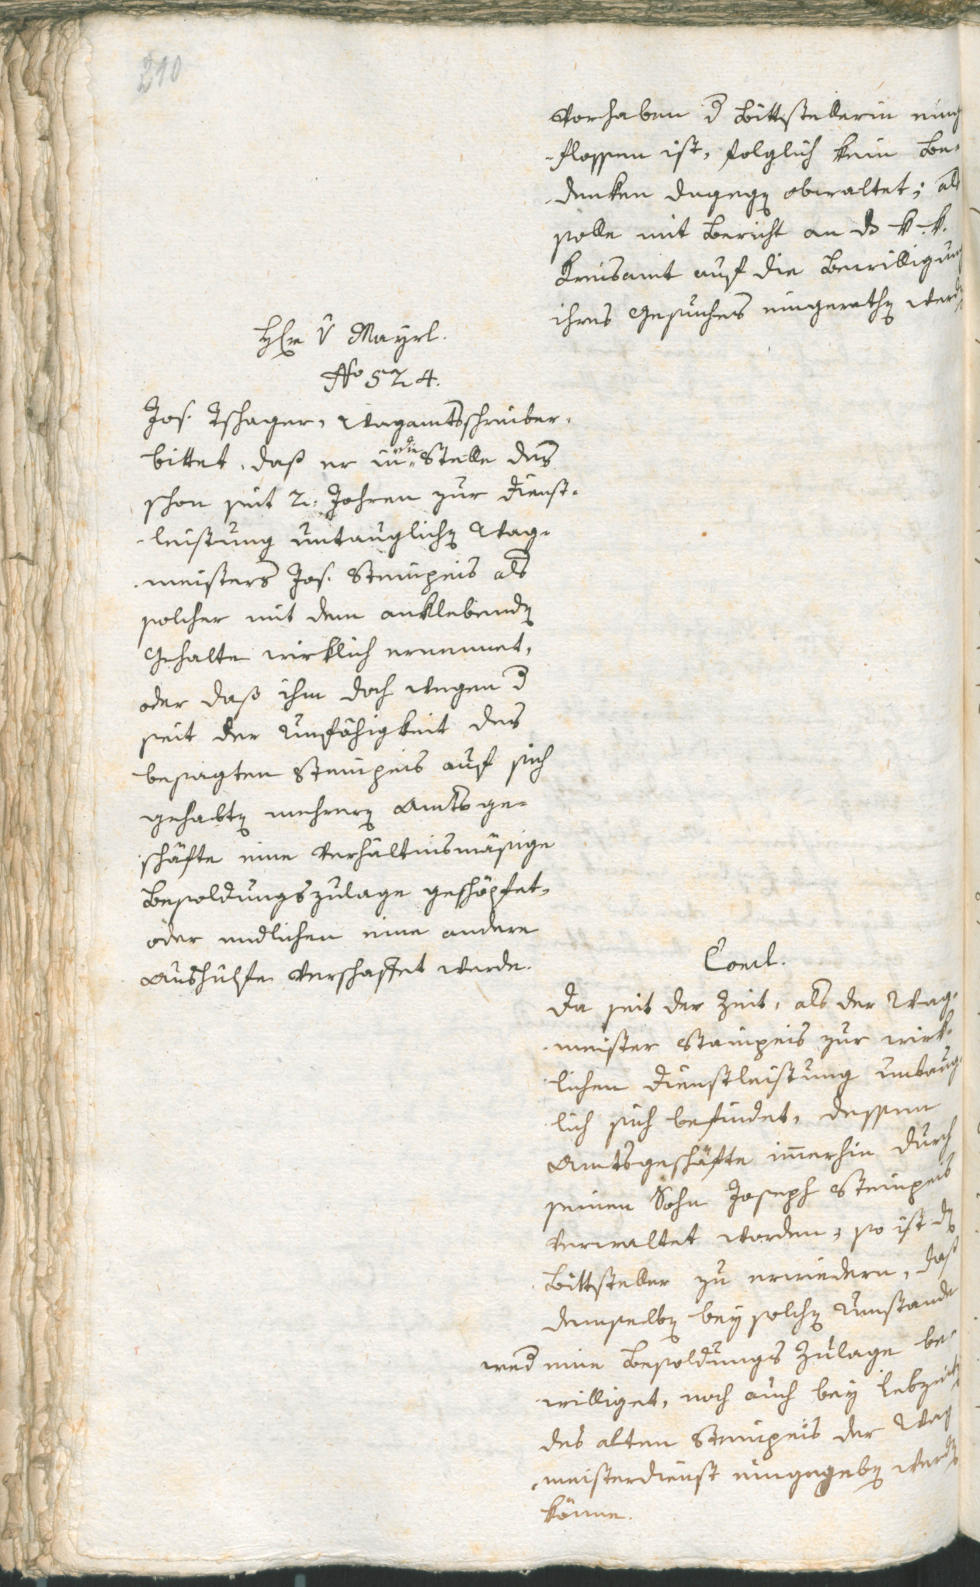 210
Vorhaben d Bittstellerin eing
-flossen ist, folglich kein Be-
denken dagegen obwaltet; als
solle mit Bericht an ds k. k.
Kreisamt auf die Bewilligung
ihres Gesuches eingerathen werden
H v Mayrl.
No 524.
Jos. Tschager, Wagamtsschreiber,
bittet, daß er in die Stelle des
schon seit 2. Jahren zur Dienst-
-leistung untauglichen Wag-
meisters Jos. Steinpeis als
solcher mit dem anklebenden
Gehalte wirklich ernennet,
oder daß ihm doch wegen d
seit der Unfähigkeit des
besagten Steinpeis auf sich
gehabten mehrern Amtsge-
schäfte eine verhältnismäßige
Besoldungszulage geschöpfet,
oder endlichen eine andere
Aushülfe verschaffet werde.
Concl.
Da seit der Zeit, als der Wag-
meister Steinpeis zur wirk-
lichen Dienstleistung untaug-
lich sich befindet, dessen
Amtsgeschäfte immerhin durch
seinen Sohn Joseph Steinpeis
verwaltet worden, so ist dem
Bittsteller zu erwiedern, daß
demselben bey solchen Umstande
wed eine Besoldungs Zulage be-
williget, noch auch bey Lebzeiten
des alten Steinpeis der Wag
meisterdienst eingegeben werden
könne.